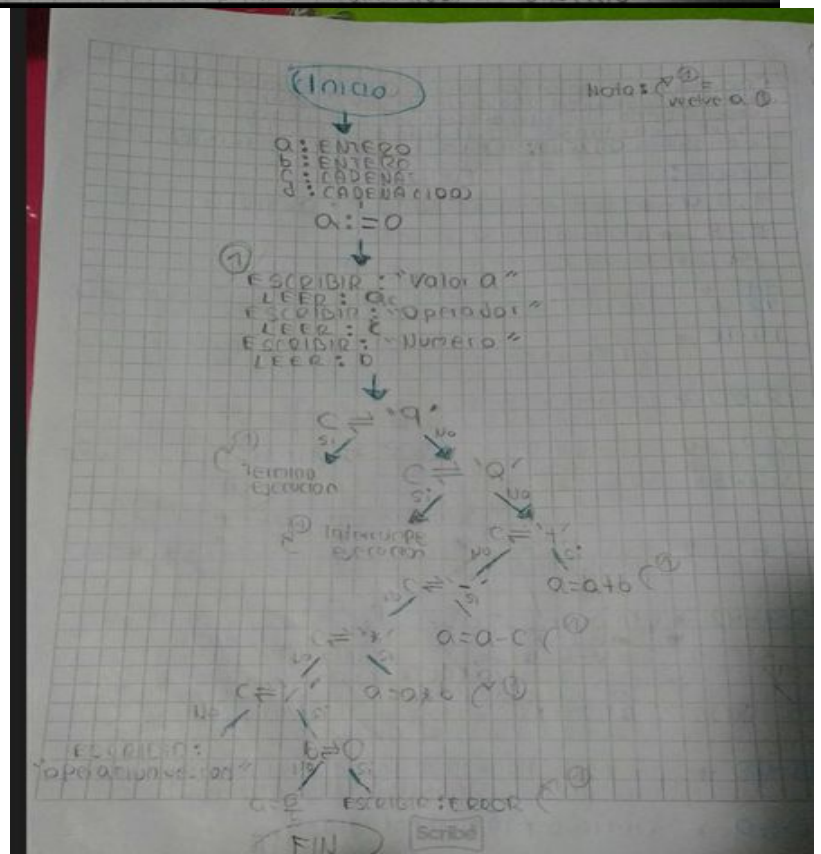 Inicio
Nota: ① =
vuelve a ①
a: ENTERO
b: ENTERO
c: CADENA
d: CADENA (100)
a:=0
①
ESCRIBIR: "Valor a"
LEER: a
ESCRIBIR: "Operador"
LEER: c
ESCRIBIR: "Numero"
LEER: b
C = 'q'
si No
①
ejecucion
C = 'Q'
si No
① Interrumpe
ejecucion
C = '+'
No si
a=a+b ①
C = '-'
si
a=a-c ①
C = '*'
si
a=a*b ①
C = '/'
No si
ESCRIBIR:
b=0
si
ESCRIBIR: ERROR ①
FIN
Scribe